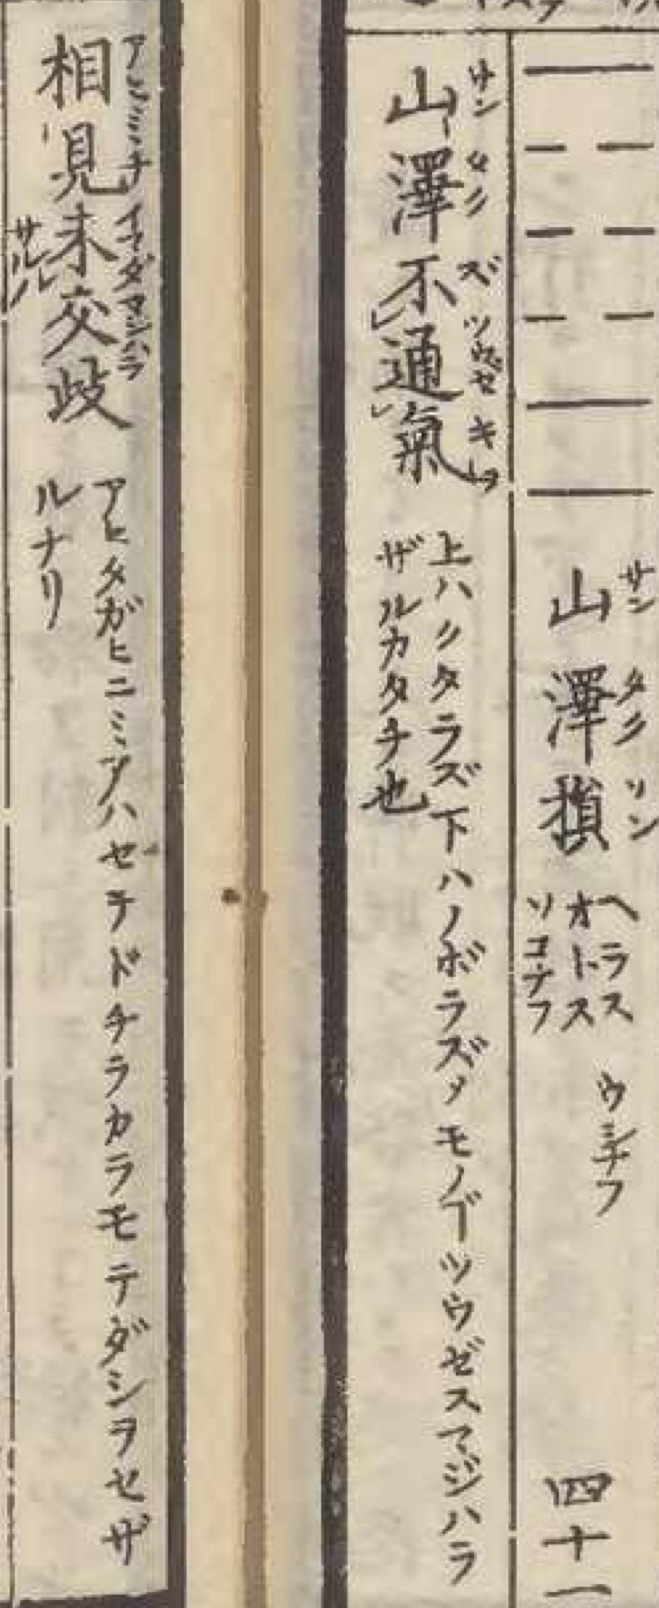 山澤損 ヘラス オトス ソコナフ ウシナフ 四十一
サン タク ソン
山澤不通氣
サン タク ズ ツウゼ キヲ
上ハクタラズ下ハノボラズメモノゴツウゼスマジハラ
ザルカタチ也
相見未交歧
アヒミテ イマダマジハラ
サルノ
アヒタガヒニミツハセテドチラカラモテダシヲセザ
ルナリ